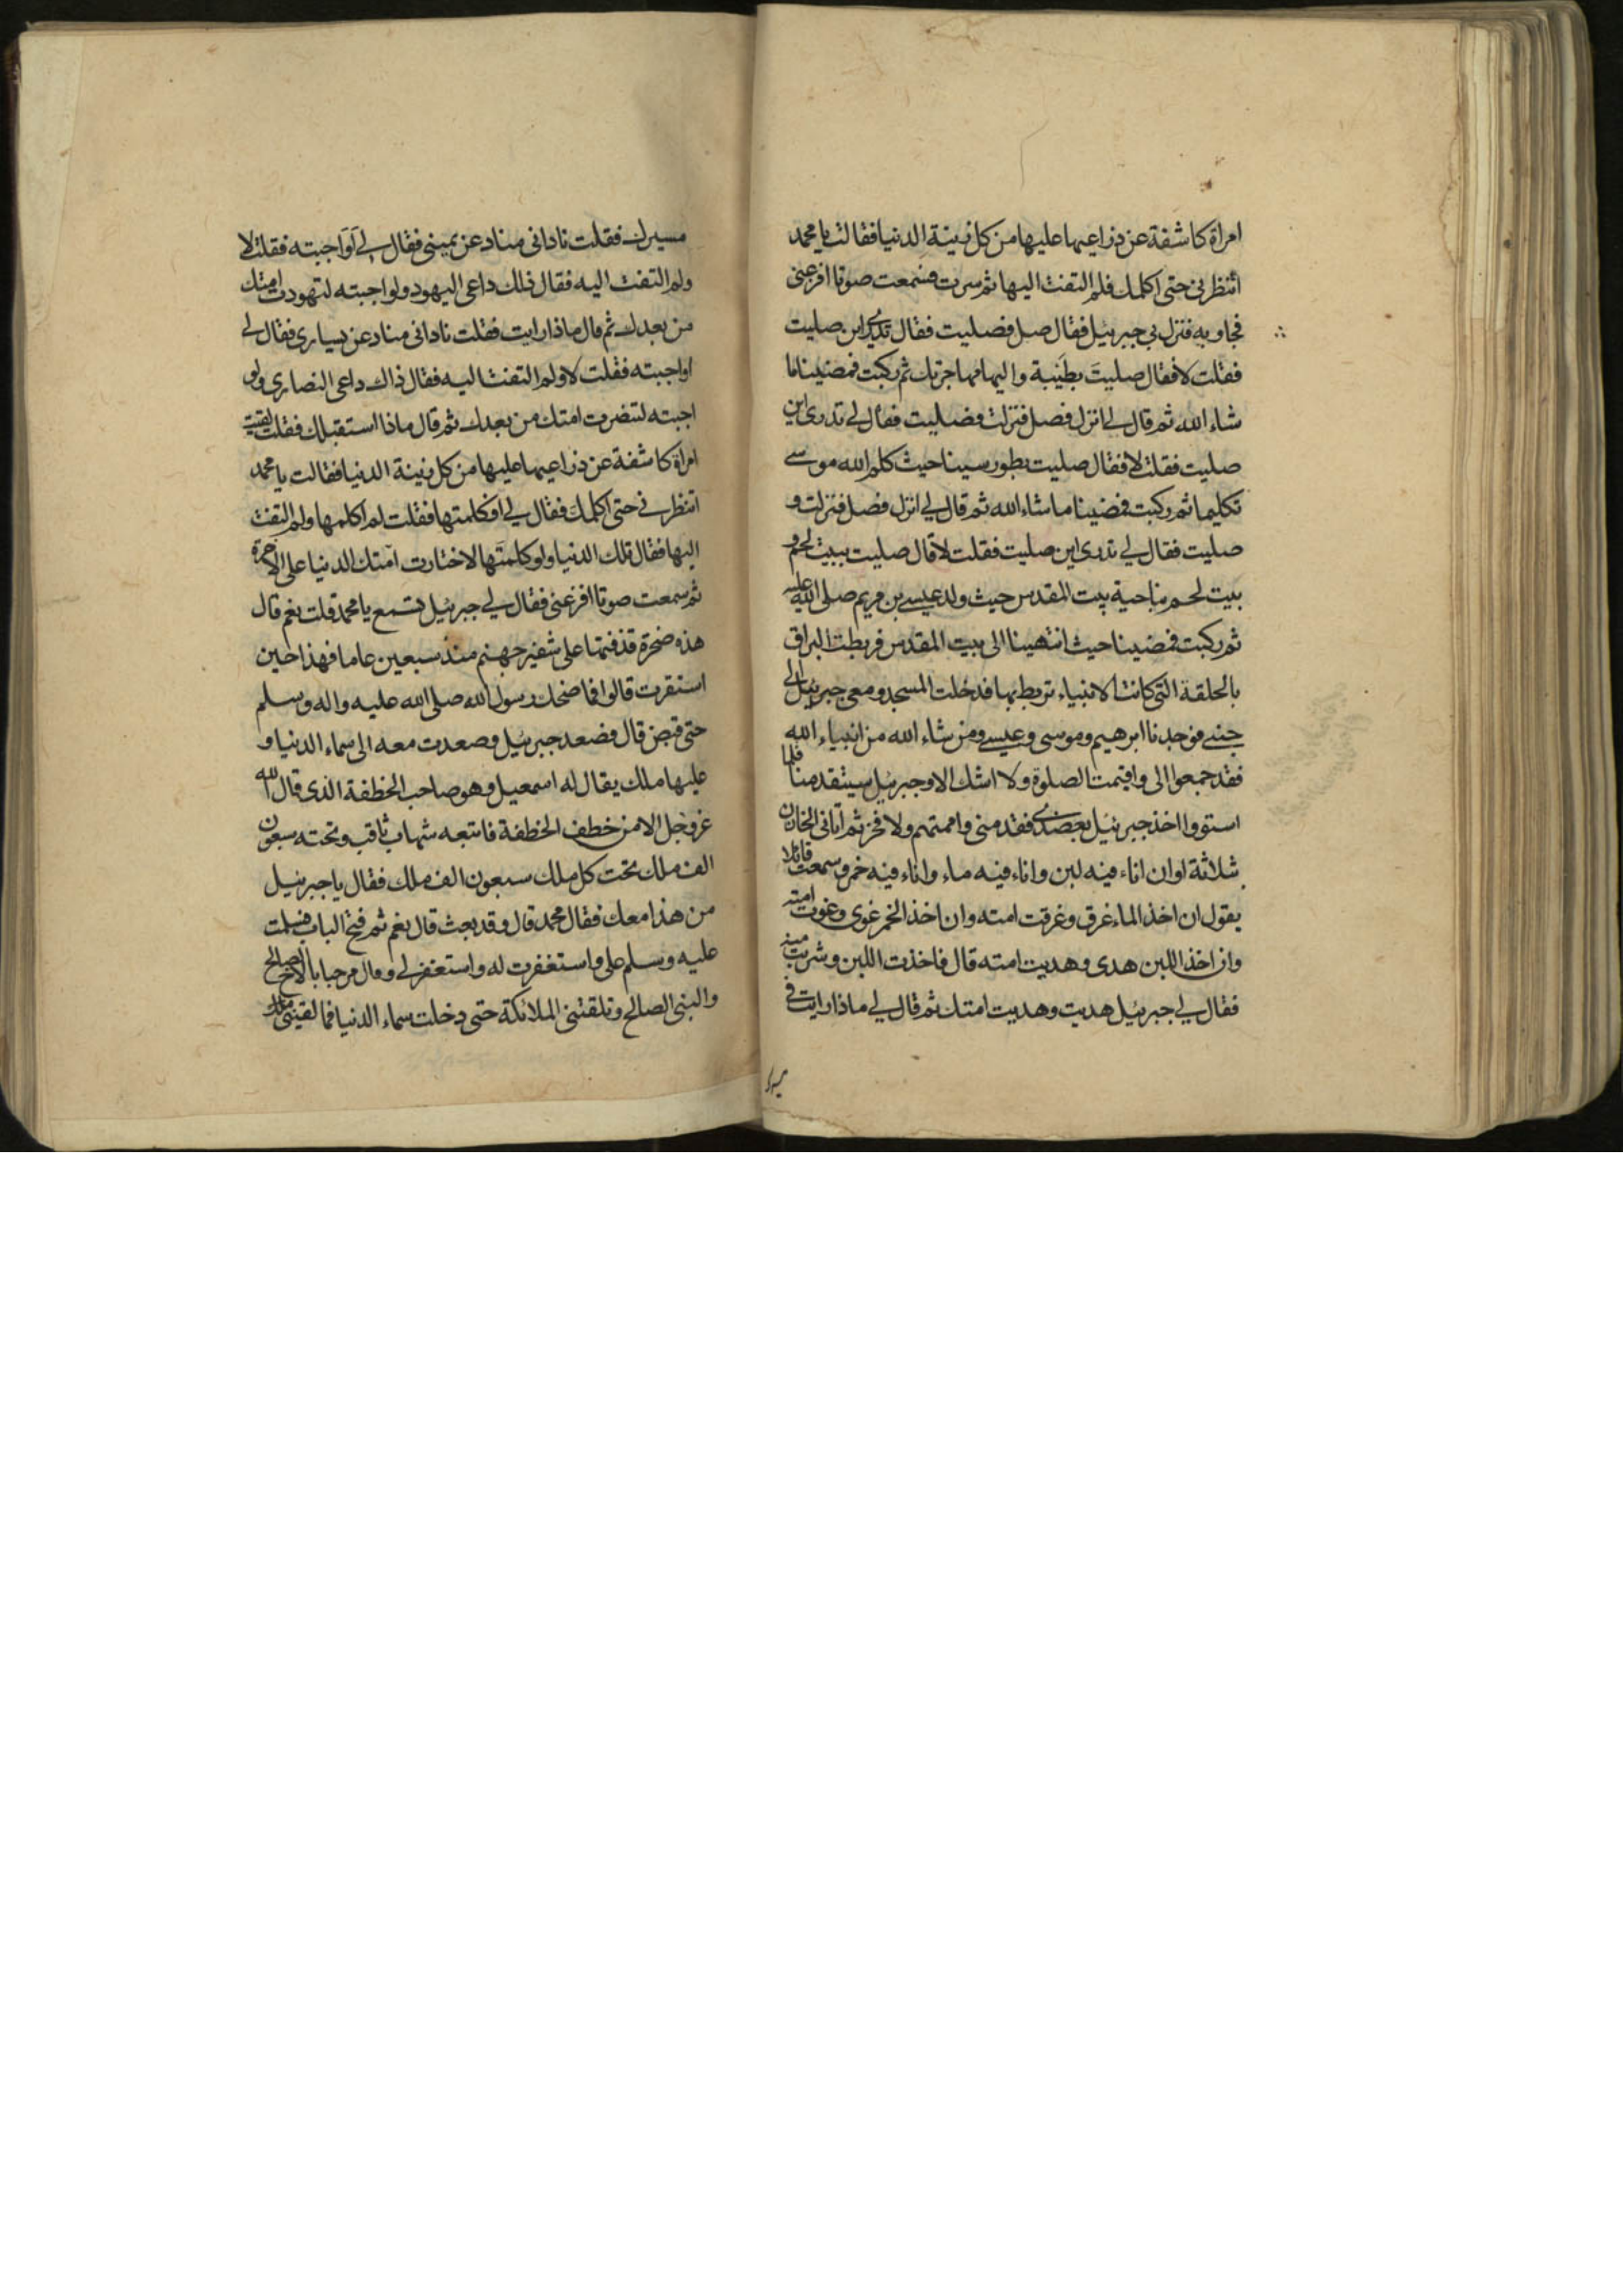 امراة كاشفة عن ذراعيها عليها من كل زينة الدنيا فقالت يا محمد
انتظرنى حتى اكلمك فلم التفت اليها ثم سرت فسمعت صوتا افزعنى
فجاوبه فنزل بى جبرئيل فقال صل فصليت فقال تدرى اين صليت
فقلت لا فقال صليت بطيبة واليها مهاجرتك ثم ركبت فمضينا ما
شاء الله ثم قال لى انزل فصل فنزلت فصليت فقال لى تدرى اين
صليت فقلت لا فقال صليت بطور سينا حيث كلم الله موسى
تكليما ثم ركبت فمضينا ما شاء الله ثم قال لى انزل فصل فنزلت و
صليت فقال لى تدرى اين صليت فقلت لا قال صليت ببيت لحم و
بيت لحم بناحية بيت المقدس حيث ولد عيسى بن مريم صلى الله عليه
ثم ركبت فمضينا حيث انتهينا الى بيت المقدس فربطت البراق
بالحلقة التى كانت الانبياء تربط بها فدخلت المسجد ومعى جبرئيل الى
جنبى فوجدنا ابرهيم وموسى وعيسى ومن شاء الله من انبياء الله
فقد جمعوا الى واقيمت الصلوة ولا اشك الا وجبرئيل سيتقدمنا فلما
استووا اخذ جبرئيل بعضدى فقدمنى واممتهم ولا فخر ثم اتانى الخازن
بثلاثة اوان اناء فيه لبن واناء فيه ماء واناء فيه خمر وسمعت قائلا
يقول ان اخذ الماء غرق وغرقت امته وان اخذ الخمر غوى وغوت امته
وان اخذ اللبن هدى وهديت امته قال فاخذت اللبن وشربت منه
فقال لى جبرئيل هديت وهديت امتك ثم قال لى ماذا رايت فى
مسيرك
مسيرك فقلت نادانى مناد عن يمينى فقال لى أوَاجبته فقلت لا
ولم التفت اليه فقال ذلك داعى اليهود ولو اجبته لتهودت امتك
من بعدك ثم قال ماذا رايت فقلت نادانى مناد عن يسارى فقال لى
اواجبته فقلت لا ولم التفت اليه فقال ذاك داعى النصارى ولو
اجبته لتنصرت امتك من بعدك ثم قال ماذا استقبلك فقلت لقيت
امراة كاشفة عن ذراعيها عليها من كل زينة الدنيا فقالت يا محمد
انتظرنى حتى اكلمك فقال لى افكلمتها فقلت لم اكلمها ولم التفت
اليها فقال تلك الدنيا ولو كلمتها لاختارت امتك الدنيا على الاخرة
ثم سمعت صوتا افزعنى فقال لى جبرئيل تسمع يا محمد قلت نعم قال
هذه صخرة قذفتها على شفير جهنم منذ سبعين عاما فهذا حين
استقرت قالوا فما ضحك رسول الله صلى الله عليه واله وسلم
حتى قبض قال فصعد جبرئيل وصعدت معه الى سماء الدنيا و
عليها ملك يقال له اسمعيل وهو صاحب الخطفة الذى قال الله
عز وجل الا من خطف الخطفة فاتبعه شهاب ثاقب وتحته سبعون
الف ملك تحت كل ملك سبعون الف ملك فقال يا جبرئيل
من هذا معك فقال محمد قال وقد بعث قال نعم ثم فتح الباب فسلمت
عليه وسلم على واستغفرت له واستغفر لى وقال مرحبا بالاخ الصالح
والنبى الصالح وتلقتنى الملائكة حتى دخلت سماء الدنيا فما لقينى ملك